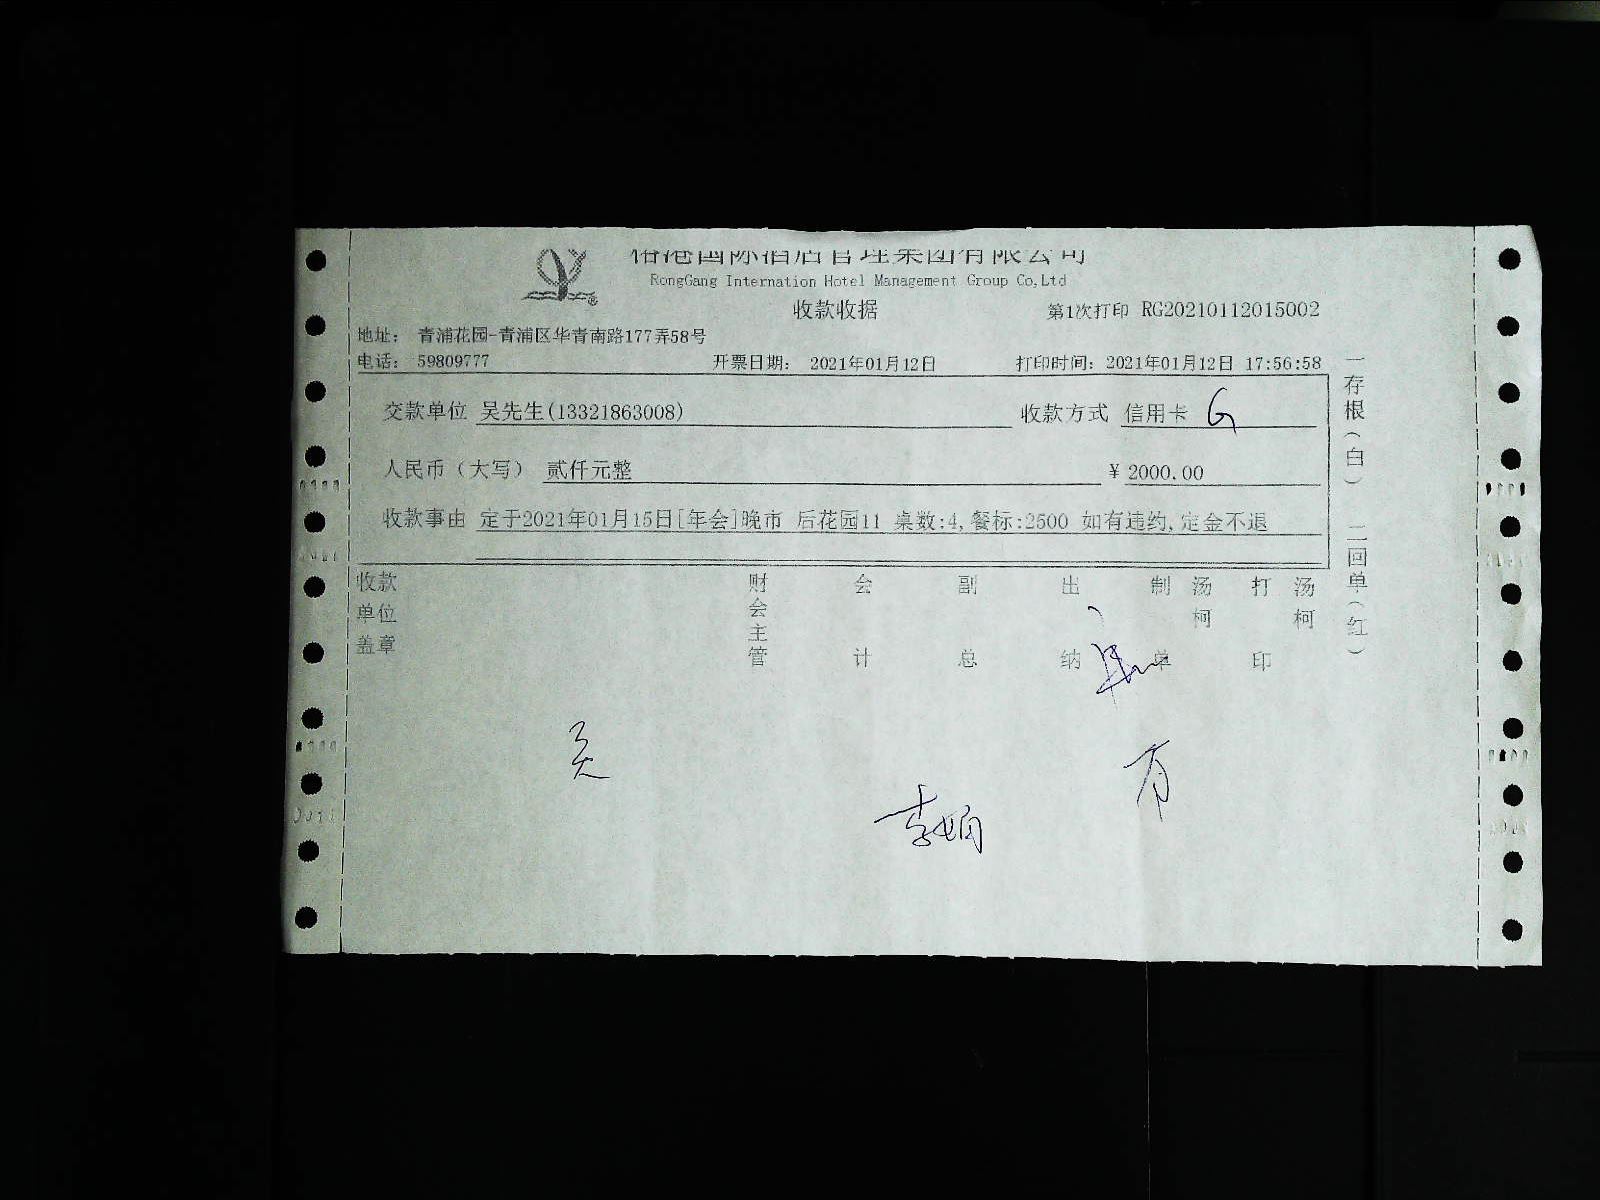 港国际酒店管理集团有限公司
RongGang Internation Hotel Management Group Co,Ltd
收款收据
第1次打印 RG20210112015002
地址: 青浦花园-青浦区华青南路177弄58号
电话: 59809777 开票日期: 2021年01月12日 打印时间: 2021年01月12日 17:56:58
交款单位 吴先生(13321863008) 收款方式 信用卡 G
人民币(大写) 贰仟元整 ¥ 2000.00
收款事由 定于2021年01月15日[年会]晚市 后花园11 桌数:4,餐标:2500 如有违约,定金不退
一存根(白) 二回单(红)
收款单位盖章 财会主管 会计 副总 出纳 制单 汤柯 打印 汤柯